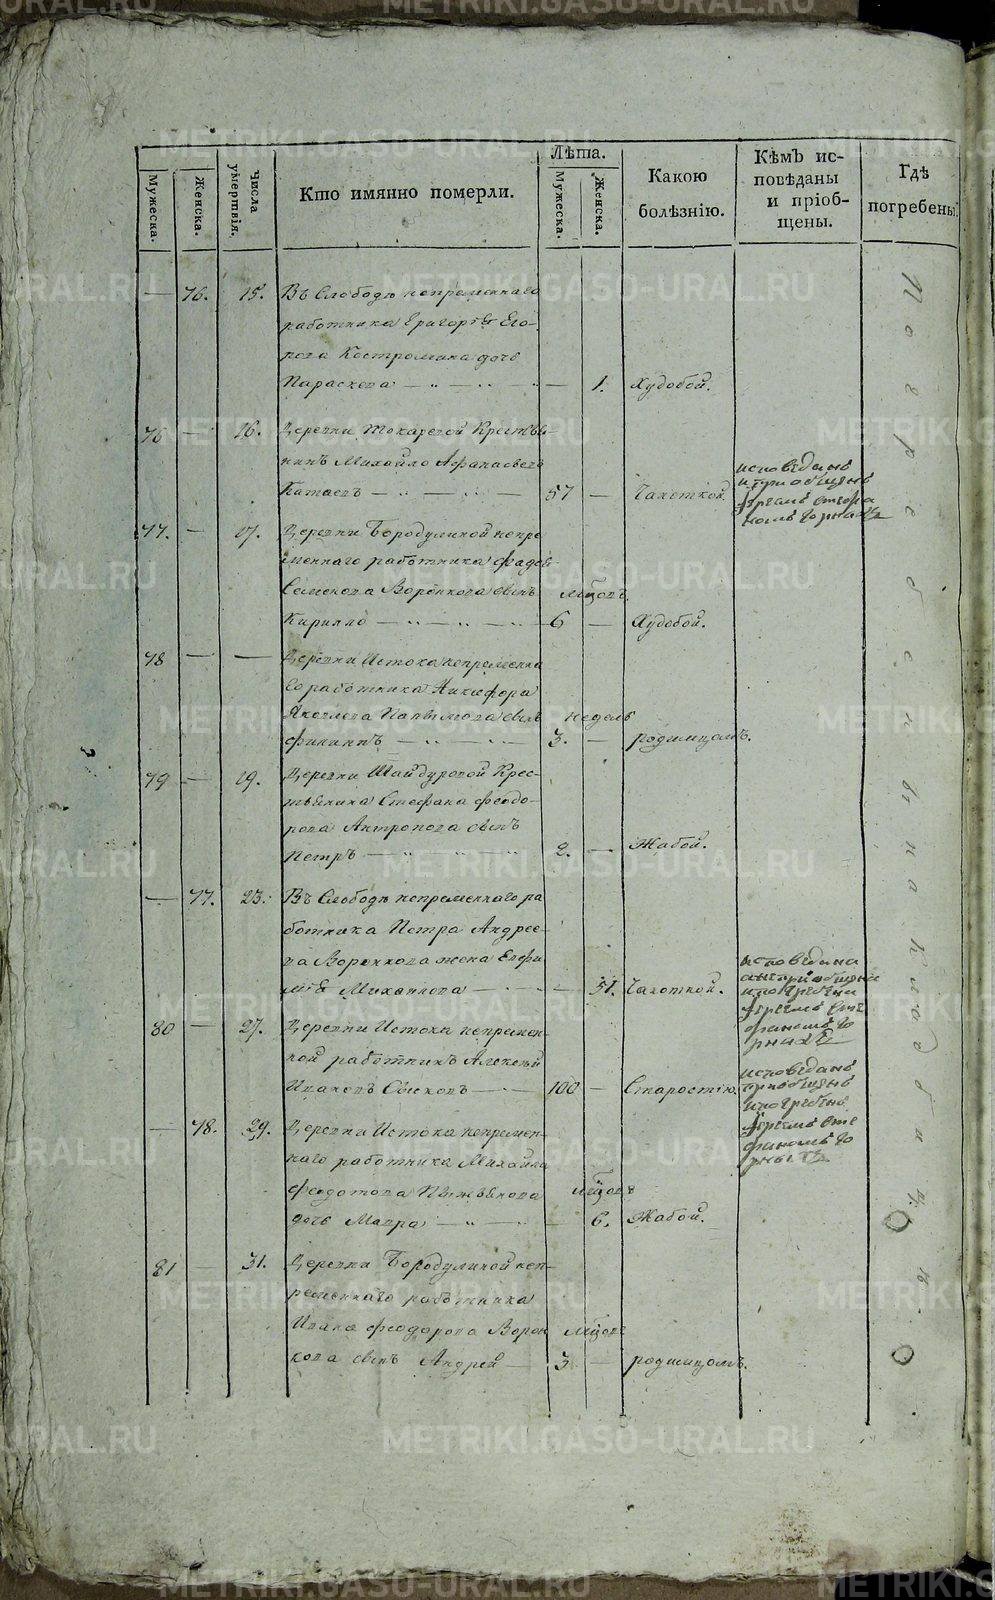 METRIKI.GASO-URAL.RU
Мужеска.
Женска.
Числа умертвія.
Кто имянно померли.
Лѣта.
Мужеска.
Женска.
Какою болѣзнію.
Кѣмъ исповѣданы и пріобщены.
Гдѣ погребены.
— 76. 15. Въ Слободѣ непременнаго
работника Григорія Его-
рова Костромина дочь
Параскева — — 1. Худобой.
76 — 16. Деревни Токаревой Крестья-
нинъ Михайло Афанасьевъ
Катаевъ — 57 — Чахоткой.
исповеданъ
и приобщенъ
Иереемъ Стефа
номъ
77. — 17. Деревни Бородулиной непре
меннаго работника Фадея
Семенова Воронкова сынъ мѣсяцовъ
Кирилло — 6 — Худобой.
78 — — Деревни Истока непременна
го работника Никифора
Яковлева сынъ недель
Филиппъ — 3. — родимцомъ.
79 — 19. Деревни Шайдуровой Крес-
тьянина Стефана Феодо-
рова Антропова сынъ
Петръ — 2. — Жабой.
— 77. 23. Въ Слободѣ непременнаго ра
ботника Петра Андрее-
ва Воронкова жена Евфи
мія Михайлова — — 51. Чахоткой.
исповедана
и погребена
Иереемъ Сте
фаномъ
80 — 27. Деревни Истока непремен-
ной работникъ Алексѣй
Ивановъ — 100 — Старостію.
исповеданъ
приобщенъ
и погребенъ
Иереемъ Сте
фаномъ
— 78. 29. Деревни Истока непремен-
наго работника Михайла
Федотова мѣсяцовъ
дочь Мавра — — 6. Жабой.
81 — 31. Деревни Бородулиной неп-
ременнаго работника
Ивана Феодорова Ворон мѣсяцовъ
кова сынъ Андрей — 3 — родимцомъ.
Погребены на кладбищѣ